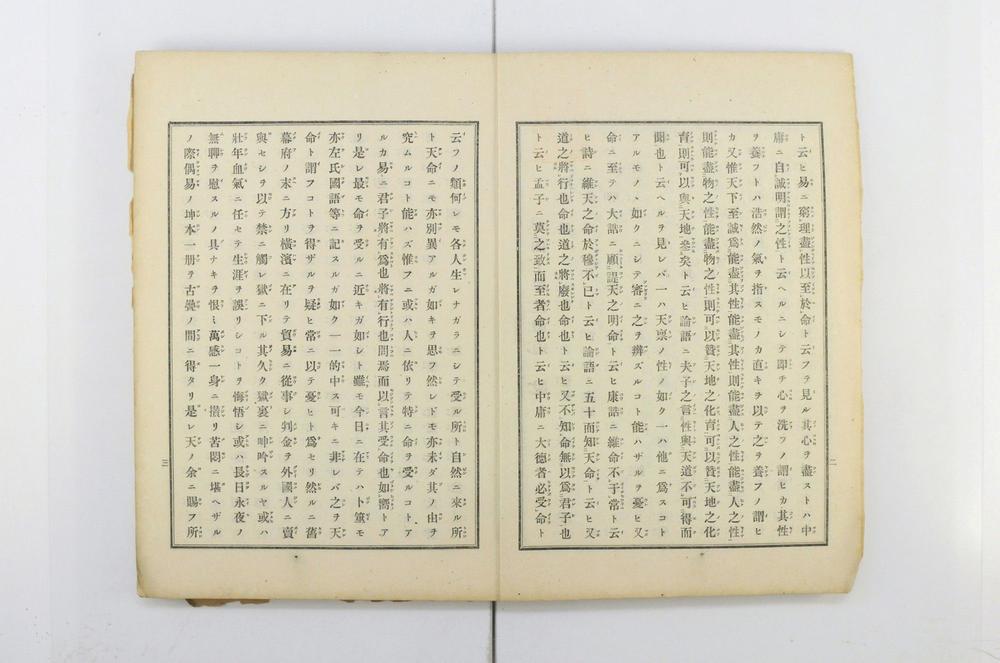 ト云ヒ易ニ窮理盡性以至於命ト云フヲ見ル其心ヲ盡ストハ中
庸ニ自誠明謂之性ト云ヘルニシテ即チ心ヲ洗フノ謂ヒカ其性
ヲ養フトハ浩然ノ氣ヲ指スモノカ直キヲ以テ之ヲ養フノ謂ヒ
カ又惟天下至誠爲能盡其性能盡其性則能盡人之性能盡人之性
則能盡物之性能盡物之性則可以贊天地之化育可以贊天地之化
育則可以與天地參矣ト云ヒ論語ニ夫子之言性與天道不可得而
聞也ト云ヘルヲ見レバ一ハ天稟ノ性ノ如ク一ハ他ニ爲スコト
アルモノヽ如クニシテ審ニ之ヲ辨ズルコト能ハザルヲ憂ヒ又
命ニ至テハ大誥ニ顧諟天之明命ト云ヒ康誥ニ維命不于常ト云
ヒ詩ニ維天之命於穆不已ト云ヒ論語ニ五十而知天命ト云ヒ又
道之將行也命也道之將廢也命也ト云ヒ又不知命無以爲君子也
ト云ヒ孟子ニ莫之致而至者命也ト云ヒ中庸ニ大德者必受命ト
二
云フノ類何レモ各人生レナガラニシテ受ル所ト自然ニ來ル所
ト天命ニモ亦別異アルガ如キヲ思フ然レドモ亦未ダ其ノ由ヲ
究ムルコト能ハズ惟フニ或ハ人ニ依リテ特ニ命ヲ受ルコトア
ルカ易ニ君子將有爲也將有行也問焉而以言其受命也如嚮トア
リ是レ最モ命ヲ受ルニ近キガ如シト雖モ今日ニ在テハト筮モ
亦左氏國語等ニ記スルガ如ク一一的中ス可キニ非レバ之ヲ天
命ト謂フコトヲ得ザルヲ疑ヒ常ニ以テ憂ヒト爲セリ然ルニ舊
幕府ノ末ニ方リ橫濱ニ在リテ貿易ニ從事シ判金ヲ外國人ニ賣
與セシヲ以テ禁ニ觸レ獄ニ下ル其久ク獄裏ニ呻吟スルヤ或ハ
壯年血氣ニ任セテ生涯ヲ誤リシコトヲ悔悟シ或ハ長日永夜ノ
無聊ヲ慰スルノ具ナキヲ恨ミ萬感一身ニ攢リ苦悶ニ堪ヘザル
ノ際偶易ノ坤本一册ヲ古疊ノ間ニ得タリ是レ天ノ余ニ賜フ所
三